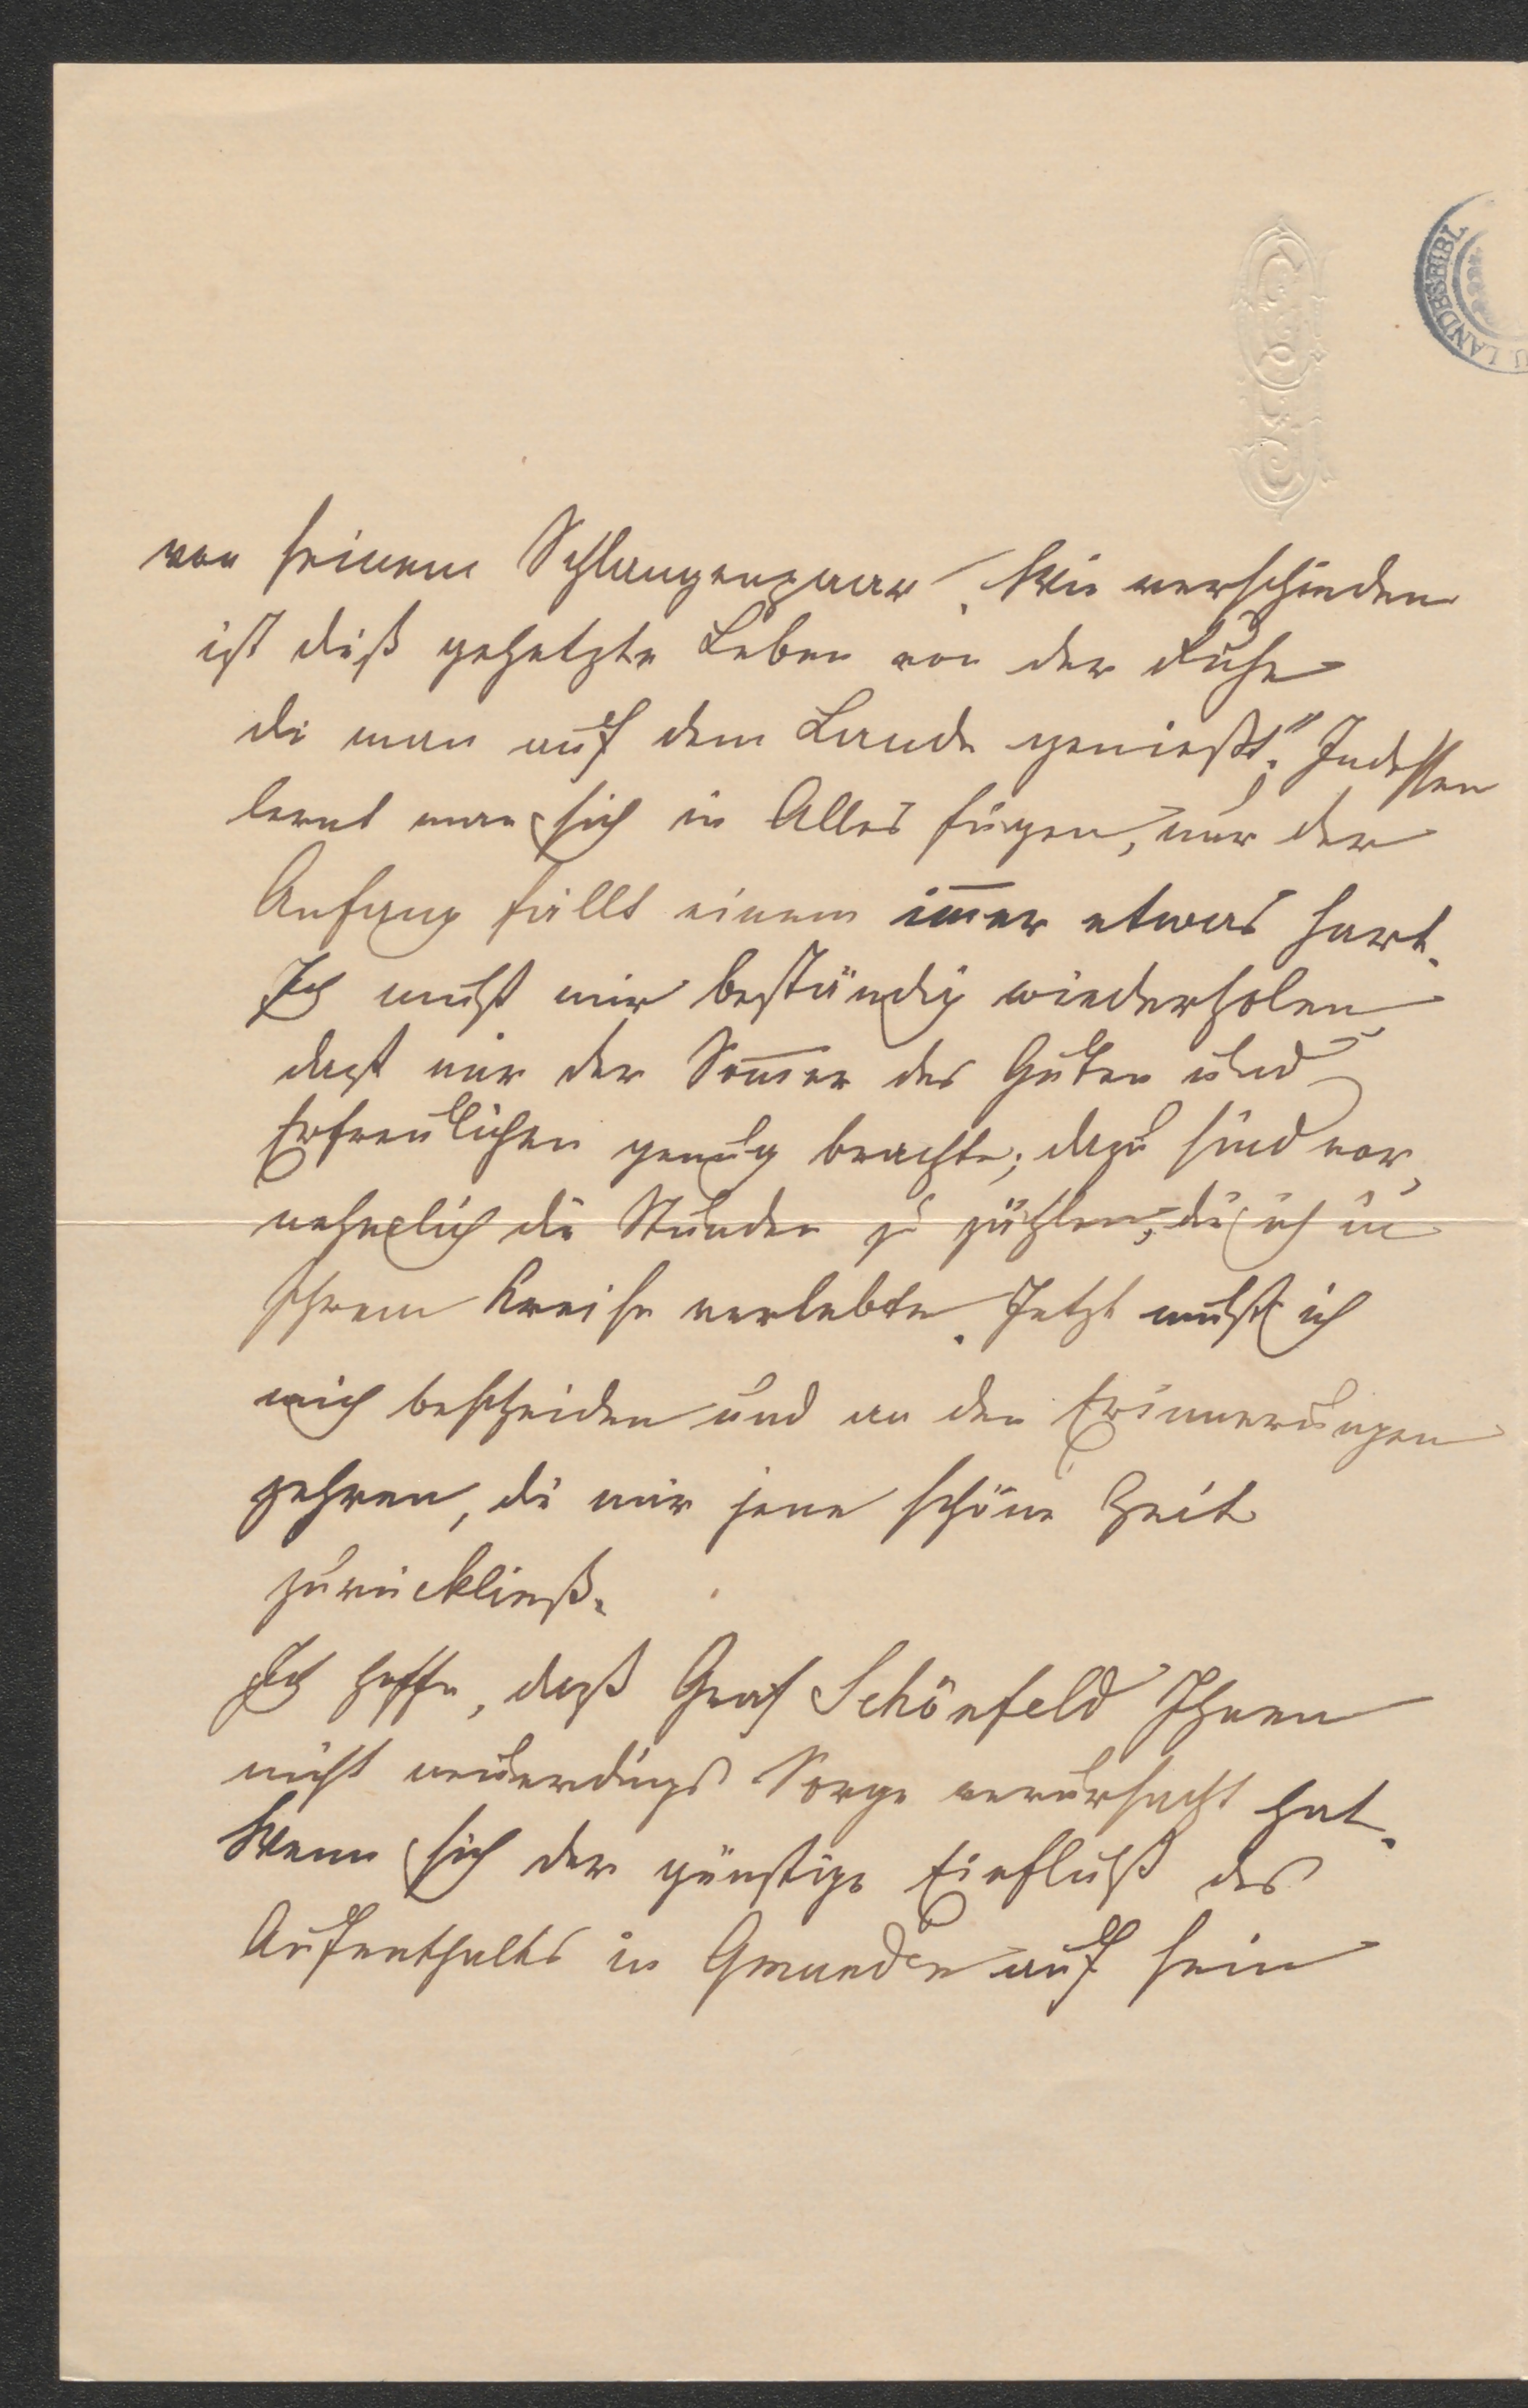 LANDESBIBL
von seinem Schlangenpaar. Wie verschieden
ist dieß gehetzte Leben von der Ruhe
die man auf dem Lande genießt." Indessen
lernt man sich in Alles fügen, nur der
Anfang fällt einem im̅er etwas hart.
Ich mußt mir beständig wiederholen
daß mir der Som̅er des Guten und
Erfreulichen genug brachte; dazu sind vor¬
nehmlich die Stunden zu zählen, die ich in
Ihrem Kreise verlebte. Jetzt muß ich
mich bescheiden und an den Erinnerungen
zehren, die mir jene schöne Zeit
zurückließ.
Ich hoffe, daß Graf Schönfeld Ihnen
nicht neuerdings Sorge verursacht hat.
Wenn sich der günstige Einfluß des
Aufenthalts in Gmunden auf sein